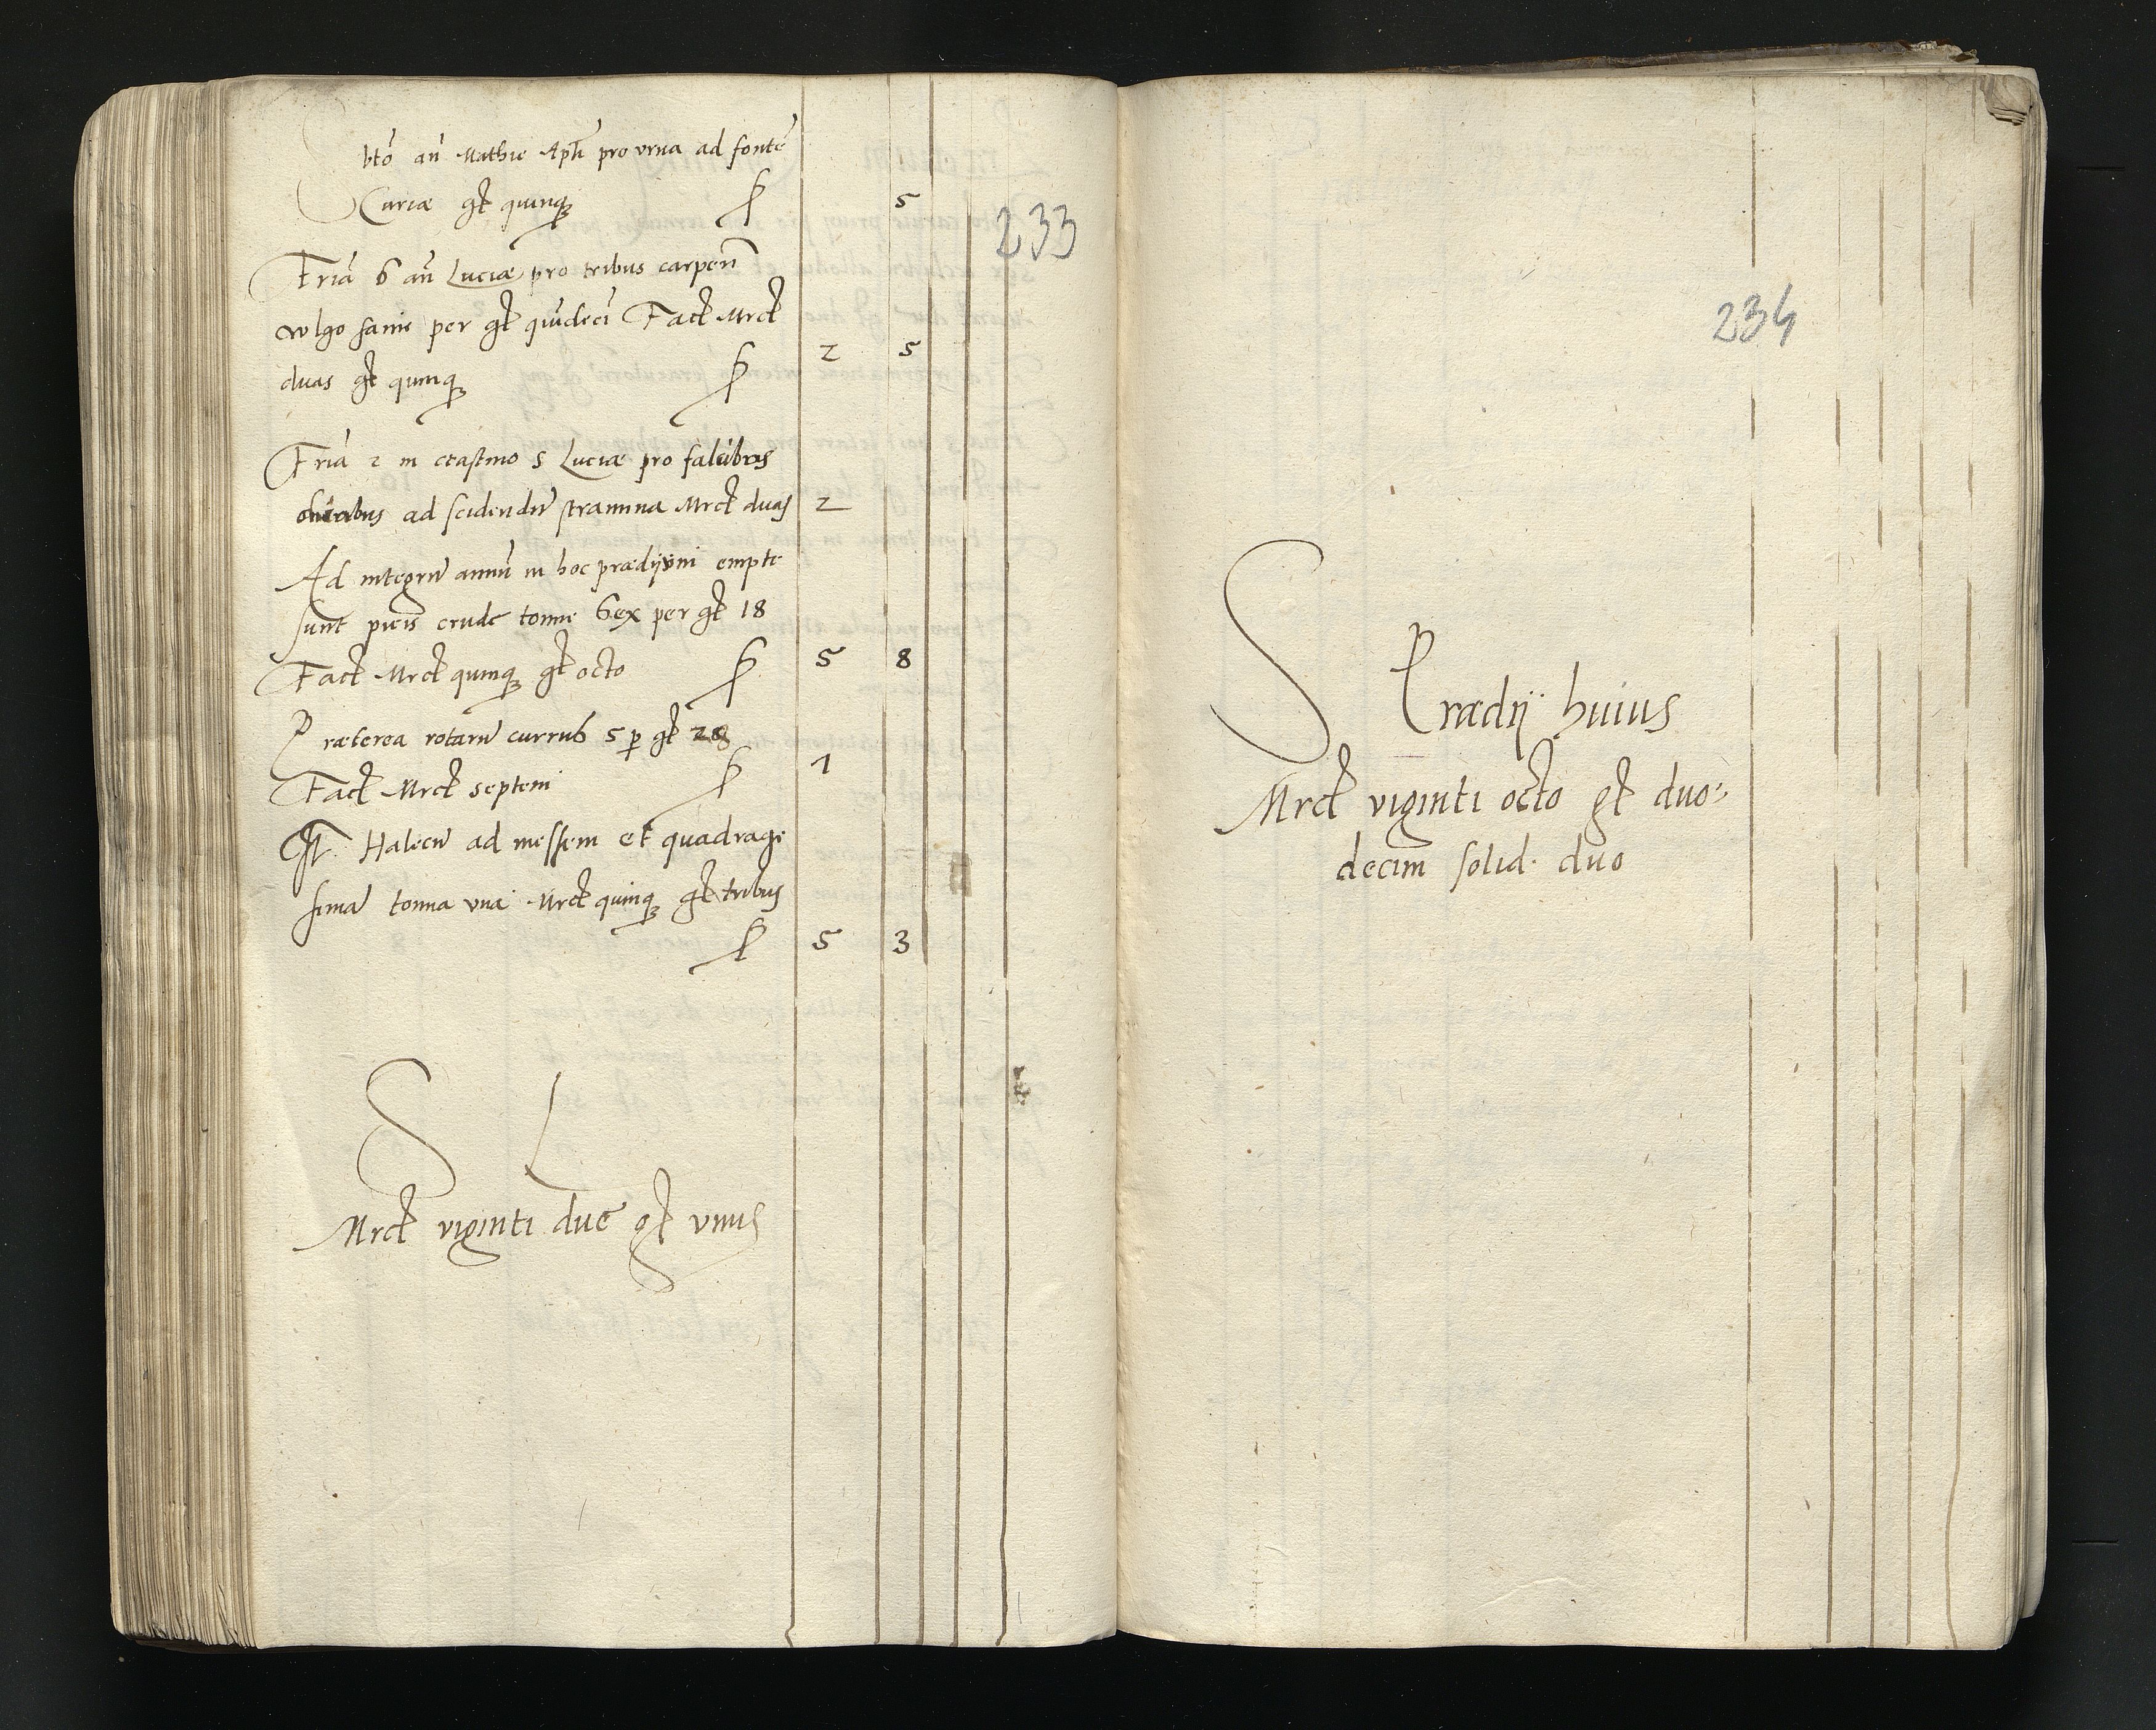 Sbto an Mathie Apli pro vrna ad fonte
Curiæ gr quinq 5
233
Fria 6 an Luciæ pro tribus carpen
wlgo sanie per gr quideci Fact Mrc
duas gr quinq 2 5
Fria 2 in crastino S Luciæ pro falcibus
ad scidendu stramina Mrc duas 2
Ad integru annu in hoc prædium empte
sunt picis crude tonne Sex per gr 18
Fact Mrc quinq gr octo 5 8
Præterea rotaru currus 5 p gr
Fact Mrc septem 7
It Halecu ad messem et quadrage
sima tonna vna Mrc quinq gr tribus
5 3
S L
Mrc viginti due gr vnus
234
S Prædij huius
Mrc viginti octo gr duo=
decim solid. duo